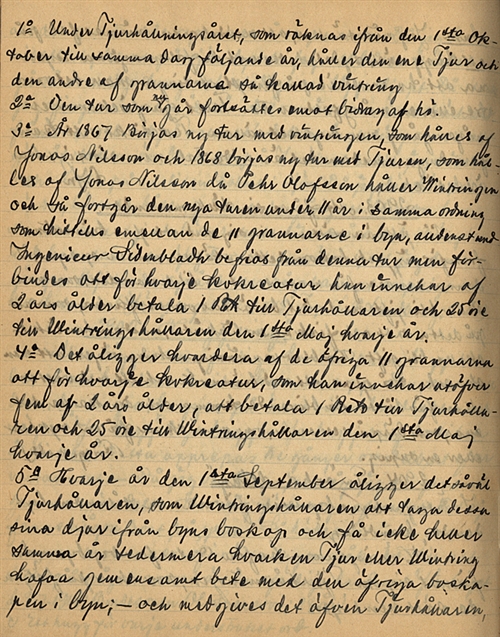 1º Under Tjurhållningsåret, som räknas ifrån den 1sta Ok-
tober till samma dag följande år, håller den ene Tjur och
den andre af grannarne så kallad vintring
2º Den tur som går fortsättes emot bidrag af hö.
3º År 1867 börjas ny tur med vintringen, som hålles af
Jonas Nilsson och 1868 börjas ny tur med Tjuren, som hål-
les af Jonas Nilsson då Pehr Olofsson håller Wintringen
och så fortgår den nya turen under 11 år i samma ordning
som hittills emellan de 11 grannarne i byn, endast und
Ingenieur Sidenbladh befrias från denna tur men för-
bindes att för hvarje kokreatur han innehar af
2 års ålder betala 1 Rdr till Tjurhållaren och 25 öre
till Wintringshållaren den 1sta Maj hvarje år.
4º Det åligger hvardera af de öfriga 11 grannarna
att för hvarje kokreatur, som han innehar utöfver
fem af 2 års ålder, att betala 1 Rdr till Tjurhålla-
ren och 25 öre till Wintringshållaren den 1sta Maj
hvarje år.
5º Hvarje år den 1sta September åligger det såväl
Tjurhållaren, som Wintringshållaren att taga dessa
sina djur ifrån byns boskap och få icke heller
samma år sedermera hvarken Tjur eller Wintring
hafva gemensamt bete med den öfriga boska-
pen i byn; — och medgives det äfven Tjurhållaren,